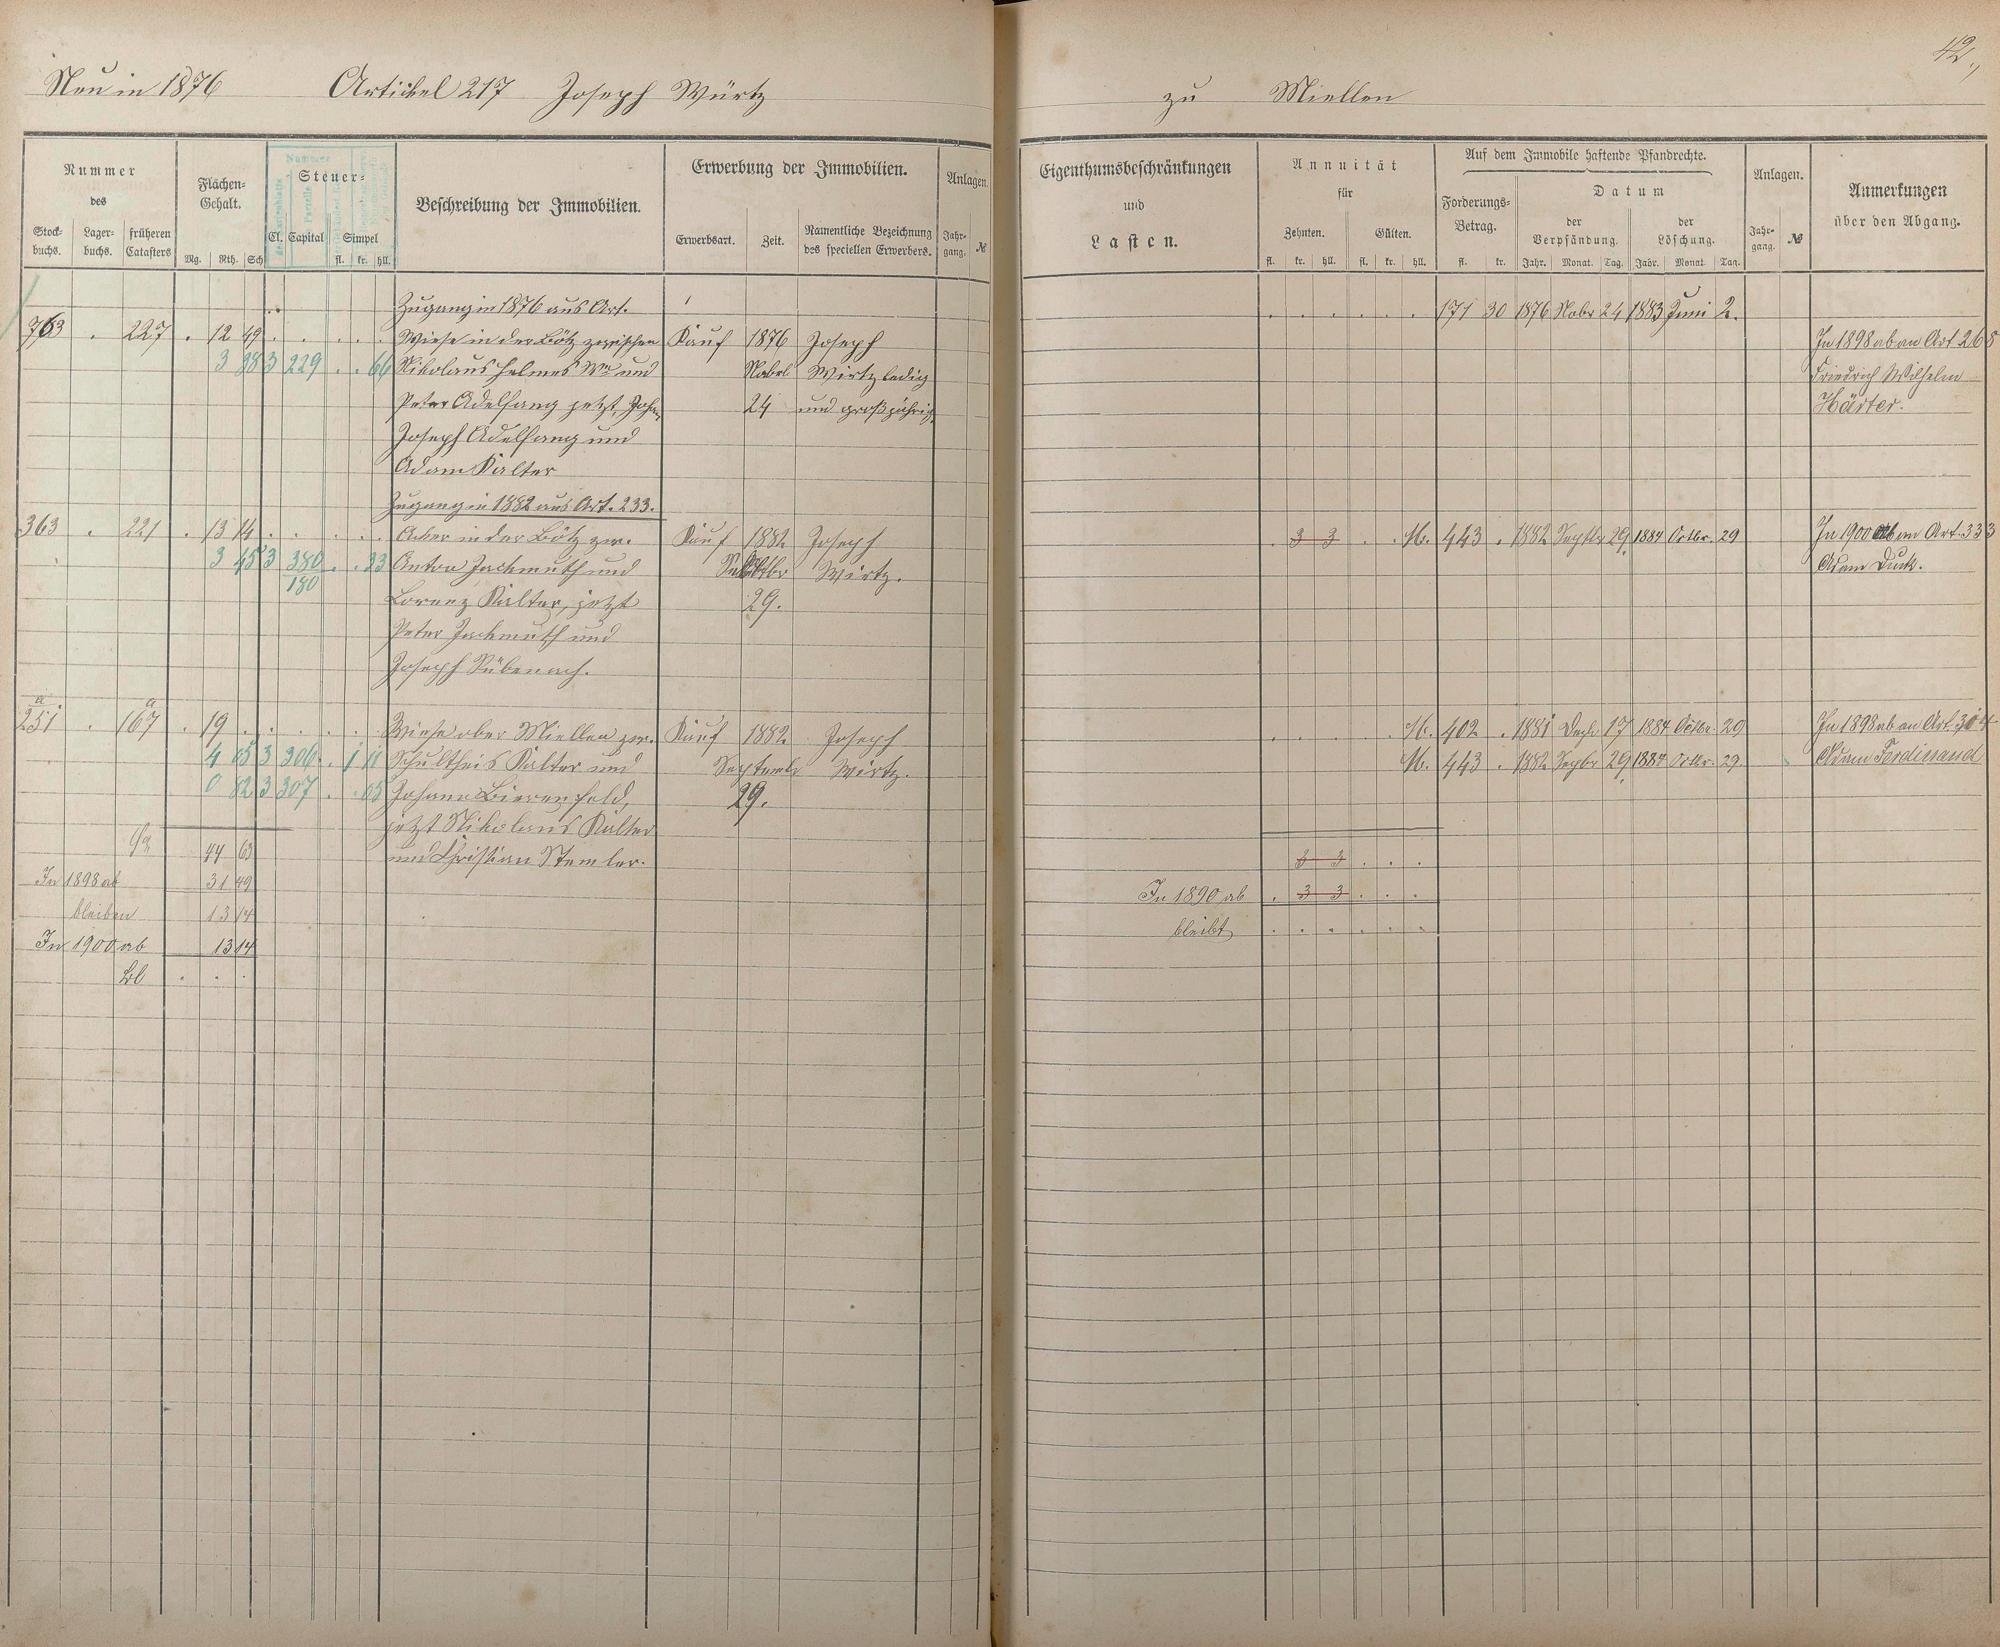 42.,
Neu in 1876 Artickel 217 Joseph Würtz zu Miellen
Nummer
des
Stock-
buchs.
Lager-
buchs.
früheren
Catasters
Flächen-
Gehalt.
Mg. Rth. Sch
Steuer-
Cl. Capital Simpel
fl. kr. hll.
Beschreibung der Immobilien.
Erwerbung der Immobilien.
Erwerbsart.
Zeit.
Namentliche Bezeichnung
des speciellen Erwerbers.
Anlagen.
Jahr-
gang. №
Eigenthumsbeschränkungen
und
Lasten.
Annuität
für
Zehnten. Gülten.
fl. kr. hll. fl. kr. hll.
Auf dem Immobile haftende Pfandrechte.
Forderungs-
Betrag.
fl. kr.
Datum
der
Verpfändung.
der
Löschung.
Jahr. Monat. Tag. Jahr. Monat. Tag.
Anlagen.
Jahr-
gang. №
Anmerkungen
über den Abgang.
Zugang in 1876 aus Art. 171 30 1876 Nobr 24 1883 Juni 2.
763 . 227 . 12 49 Wiese in der Bötz zwischen Kauf 1876 Joseph In 1898 ab an Art 265
3 38 3 229 . . 66 Nikolaus Helmes We und Nobr Wirtz ledig Friedrich Wilhelm
Peter Adelfang jetzt, Joh. 24 und großjährig Härter.
Joseph Adelfang und
Adam Kalter
Zugang in 1882 aus Art. 233.
363 . 221 . 13 14 Acker in der Bötz zw. Kauf 1882 Joseph 3 3 M. 443 . 1882 Septbr 29 1884 Octbr. 29 In 1900 ab an Art. 333
3 45 3 380 . . 33 Anton Jachmuth und Wirtz. Adam Duck.
180
Lorenz Kalter, jetzt 29.
Peter Jachmuth und
Joseph Sübenach.
a a
251 . 167 . 19 Wiese ober Miellen zw. Kauf 1882 Joseph M. 402 . 1881 Decbr 17 1884 Octbr. 29 In 1898 ab an Art. 304
4 05 3 306 . 1 11 Schultheis Kalter und Septembr Wirtz. M. 443 . 1882 Septbr 29 1884 Octbr. 29 Adam Ferdinand
0 82 3 307 . . 05 Johann Bierenfeld, 29.
jetzt Nikolaus Kalter
44 63 und Christian Stemler. 3 3
In 1898 ab 31 49 In 1890 ab . 3 3
bleiben 13 14 bleibt
In 1900 ab 13 14
bl